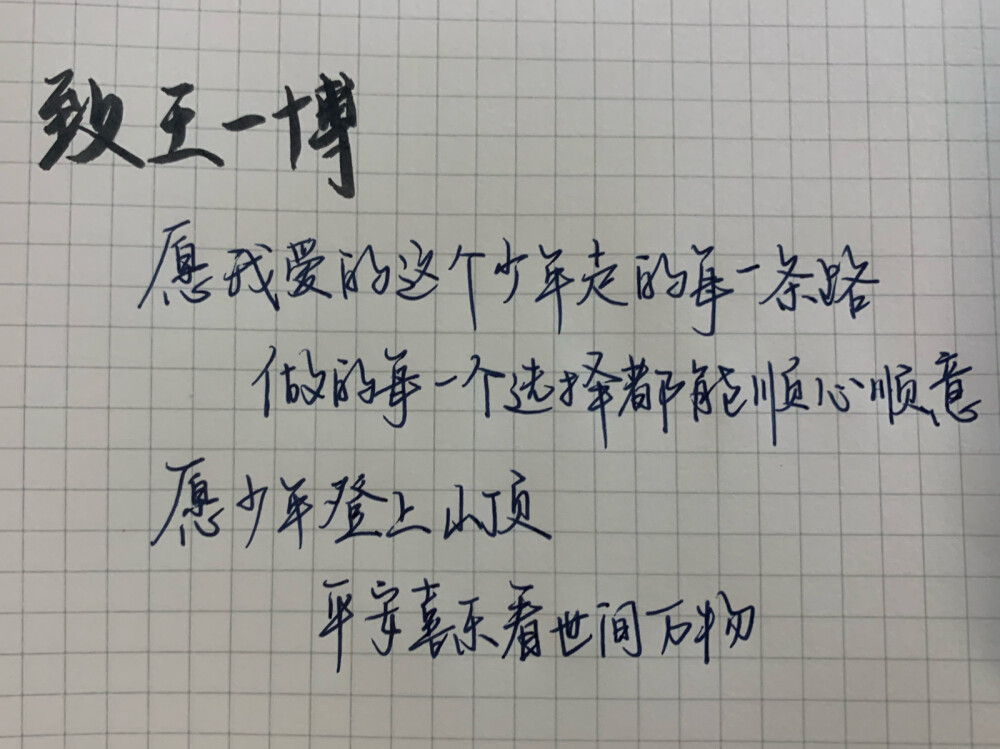 致王一博
愿我爱的这个少年走的每一条路
做的每一个选择都能顺心顺意
愿少年登上山顶
平安喜乐看世间万物